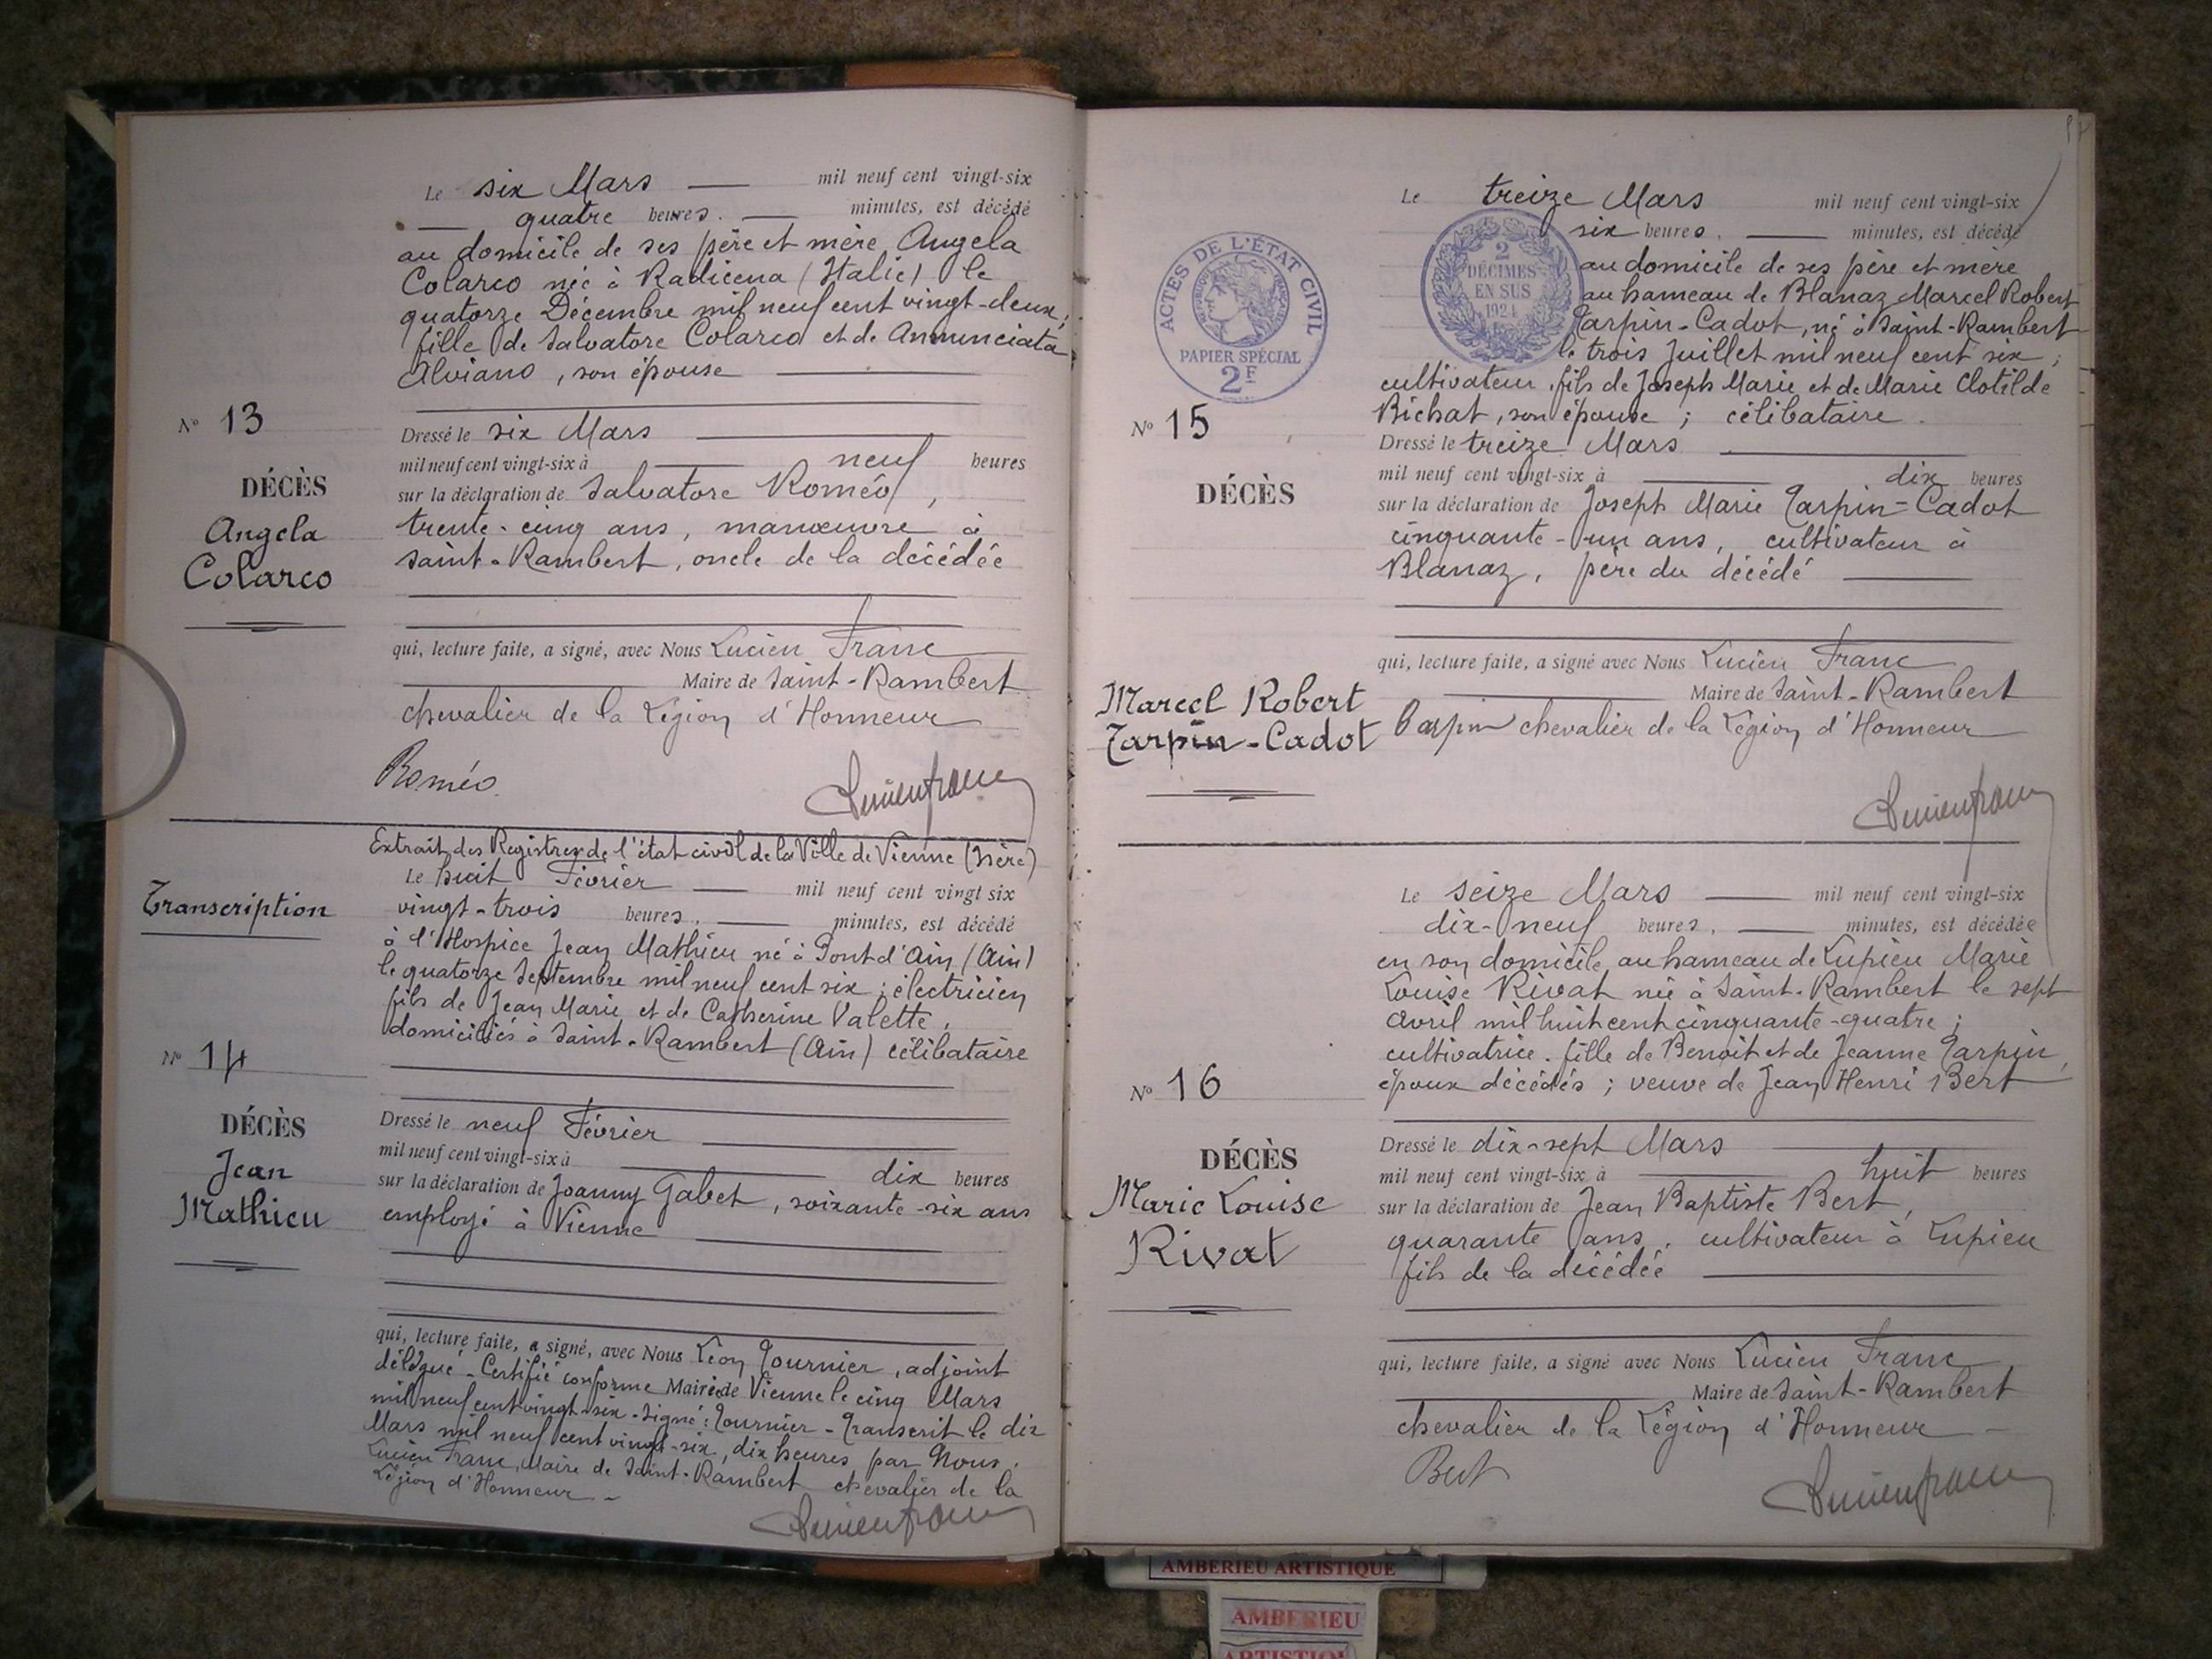 Le six Mars mil neuf cent vingt-six
quatre heures. minutes, est décédé
au domicile de ses père et mère, Angela
Colarco née à Radicena (Italie) le
quatorze Décembre mil neuf cent vingt-deux;
fille de Salvatore Colarco et de Annunciata
Alviano, son épouse
Nº 13
DÉCÈS
Angela
Colarco
Dressé le six Mars
mil neuf cent vingt-six à neuf heures
sur la déclaration de Salvatore Roméo,
trente-cinq ans, manœuvre à
Saint-Rambert, oncle de la décédée
qui, lecture faite, a signé, avec Nous Lucien Franc
Maire de Saint-Rambert
chevalier de la Légion d'Honneur
Roméo
Lucien Franc
Extrait des Registres de l'état civil de la Ville de Vienne (Isère)
Transcription
Le huit Février mil neuf cent vingt six
vingt-trois heures, minutes, est décédé
à l'Hospice Jean Mathieu né à Pont d'Ain (Ain)
le quatorze Septembre mil neuf cent six; électricien
fils de Jean Marie et de Catherine Valette,
domiciliés à Saint-Rambert (Ain) célibataire
Nº 14
DÉCÈS
Jean
Mathieu
Dressé le neuf Février
mil neuf cent vingt-six à dix heures
sur la déclaration de Joanny Gabet, soixante-six ans
employé à Vienne
qui, lecture faite, a signé, avec Nous Léon Tournier, adjoint
délégué - Certifié conforme Mairie de Vienne le cinq Mars
mil neuf cent vingt-six - Signé: Tournier - Transcrit le dix
Mars mil neuf cent vingt-six, dix heures, par Nous.
Lucien Franc, Maire de Saint-Rambert chevalier de la
Légion d'Honneur -
Lucien Franc
ACTES DE L'ÉTAT CIVIL
PAPIER SPÉCIAL
2F
2
DÉCIMES
EN SUS
1924
Le treize Mars mil neuf cent vingt-six
six heures. minutes, est décédé
au domicile de ses père et mère
au hameau de Blanaz Marcel Robert
Tarpin-Cadot, né à Saint-Rambert
le trois Juillet mil neuf cent six;
cultivateur, fils de Joseph Marie et de Marie Clotilde
Bichat, son épouse; célibataire.
Nº 15
DÉCÈS
Marcel Robert
Tarpin-Cadot
Dressé le treize Mars
mil neuf cent vingt-six à dix heures
sur la déclaration de Joseph Marie Tarpin-Cadot
cinquante-un ans, cultivateur à
Blanaz, père du décédé
qui, lecture faite, a signé avec Nous Lucien Franc
Maire de Saint-Rambert
Tarpin chevalier de la Légion d'Honneur
Lucien Franc
Le seize Mars mil neuf cent vingt-six
dix-neuf heures, minutes, est décédée
en son domicile, au hameau de Lupieu Marie
Louise Rivat née à Saint-Rambert le sept
Avril mil huit cent cinquante-quatre;
cultivatrice. fille de Benoit et de Jeanne Tarpin,
époux décédés; veuve de Jean Henri Bert
Nº 16
DÉCÈS
Marie Louise
Rivat
Dressé le dix-sept Mars
mil neuf cent vingt-six à huit heures
sur la déclaration de Jean Baptiste Bert,
quarante ans, cultivateur à Lupieu
fils de la décédée
qui, lecture faite, a signé avec Nous Lucien Franc,
Maire de Saint-Rambert
chevalier de la Légion d'Honneur -
Bert
Lucien Franc
AMBERIEU ARTISTIQUE
AMBERIEU
ARTISTIQU